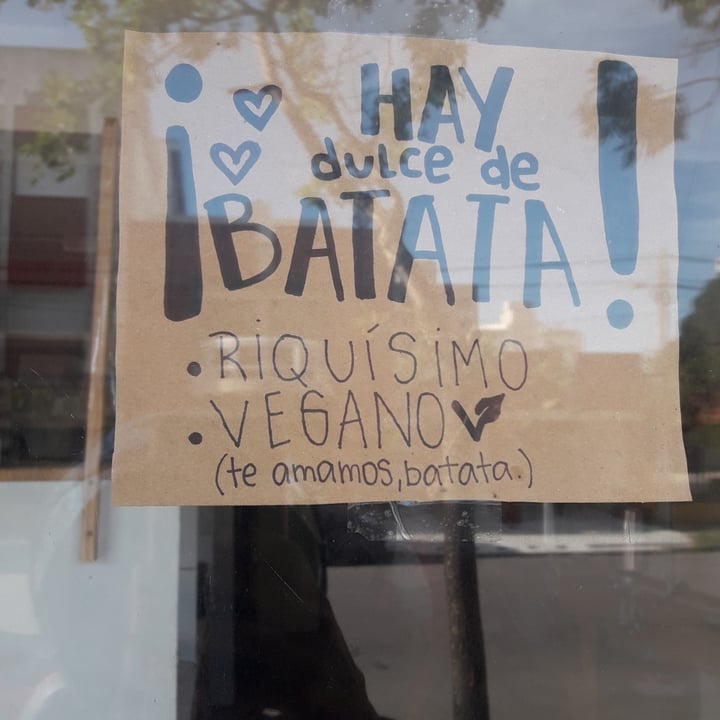 ¡HAY
dulce de
BATATA!
• RIQUÍSIMO
• VEGANO
(te amamos, batata.)